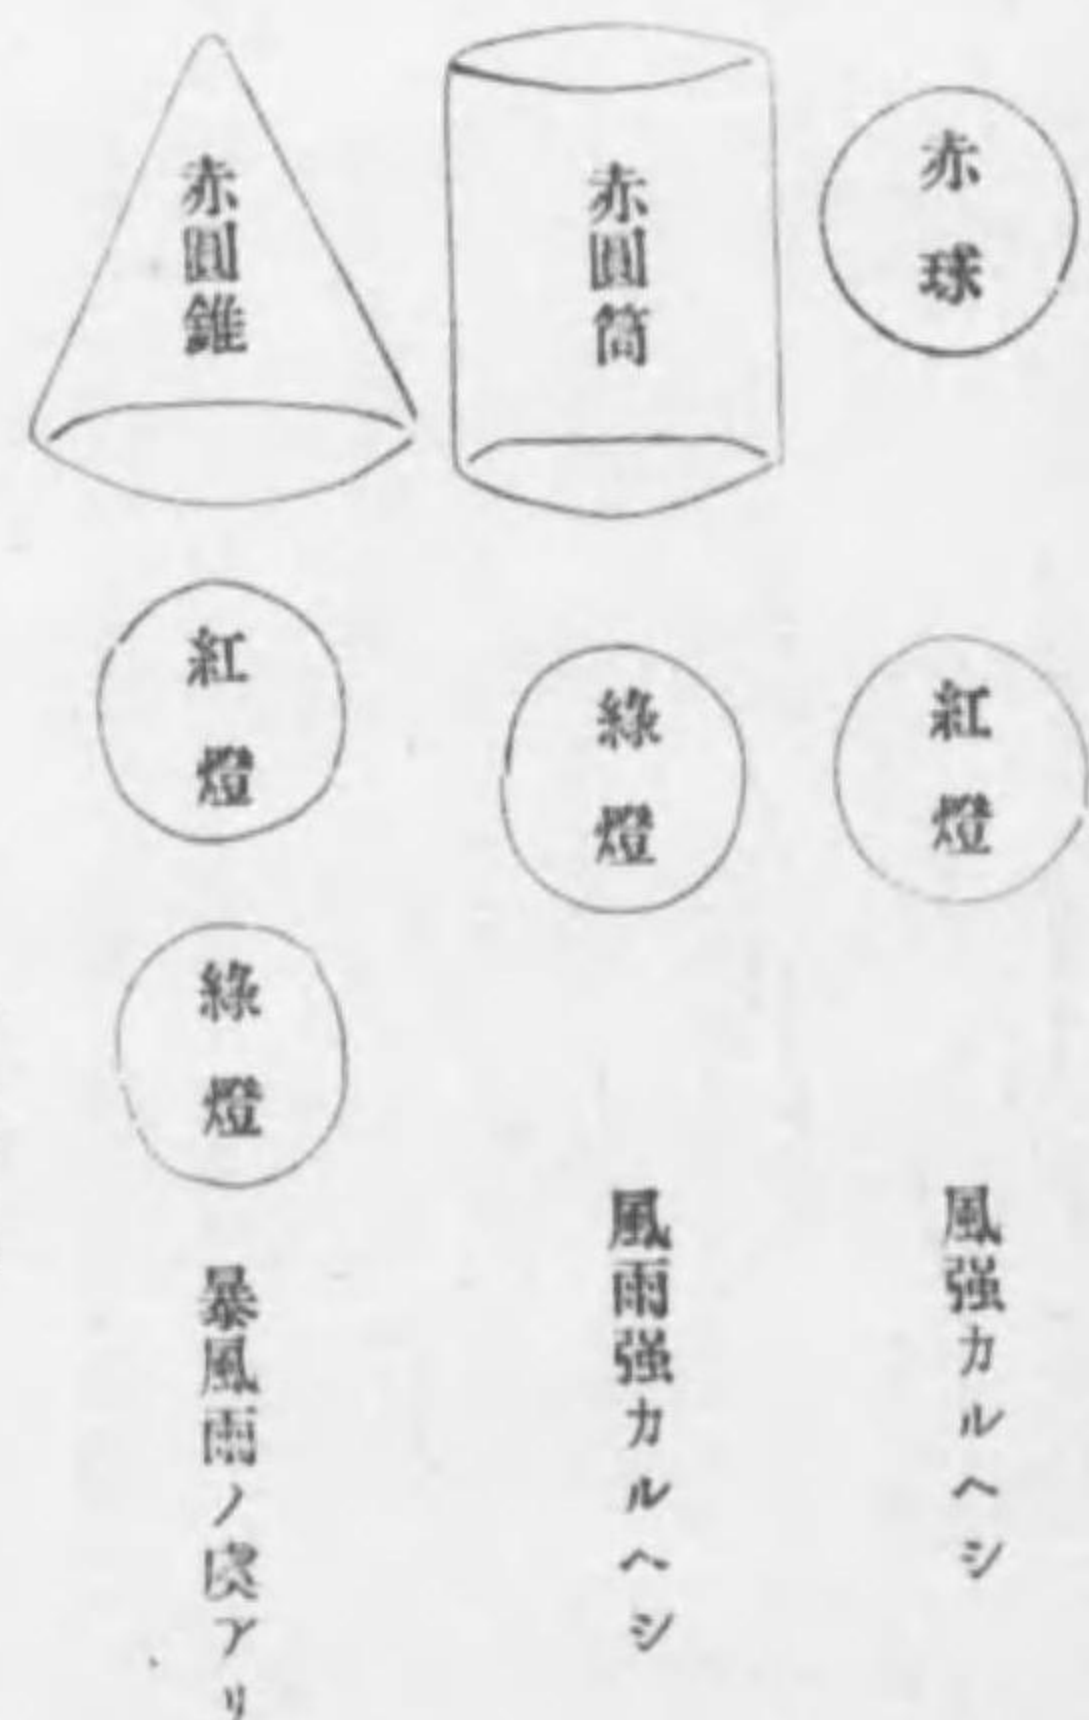 赤球
紅燈
風强カルヘシ
赤圓筒
綠燈
風雨强カルヘシ
赤圓錐
紅燈
綠燈
暴風雨ノ虞アリ